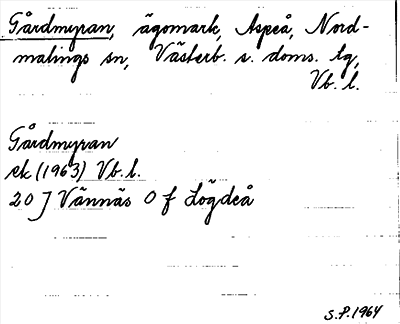 Gårdmyran, ägomark, Aspeå, Nord-
malings sn, Västerb. s. doms. tg,
Vb. l.
Gårdmyran
ek (1963) Vb. l.
20 J Vännäs 0 f Lögdeå
S.P. 1964